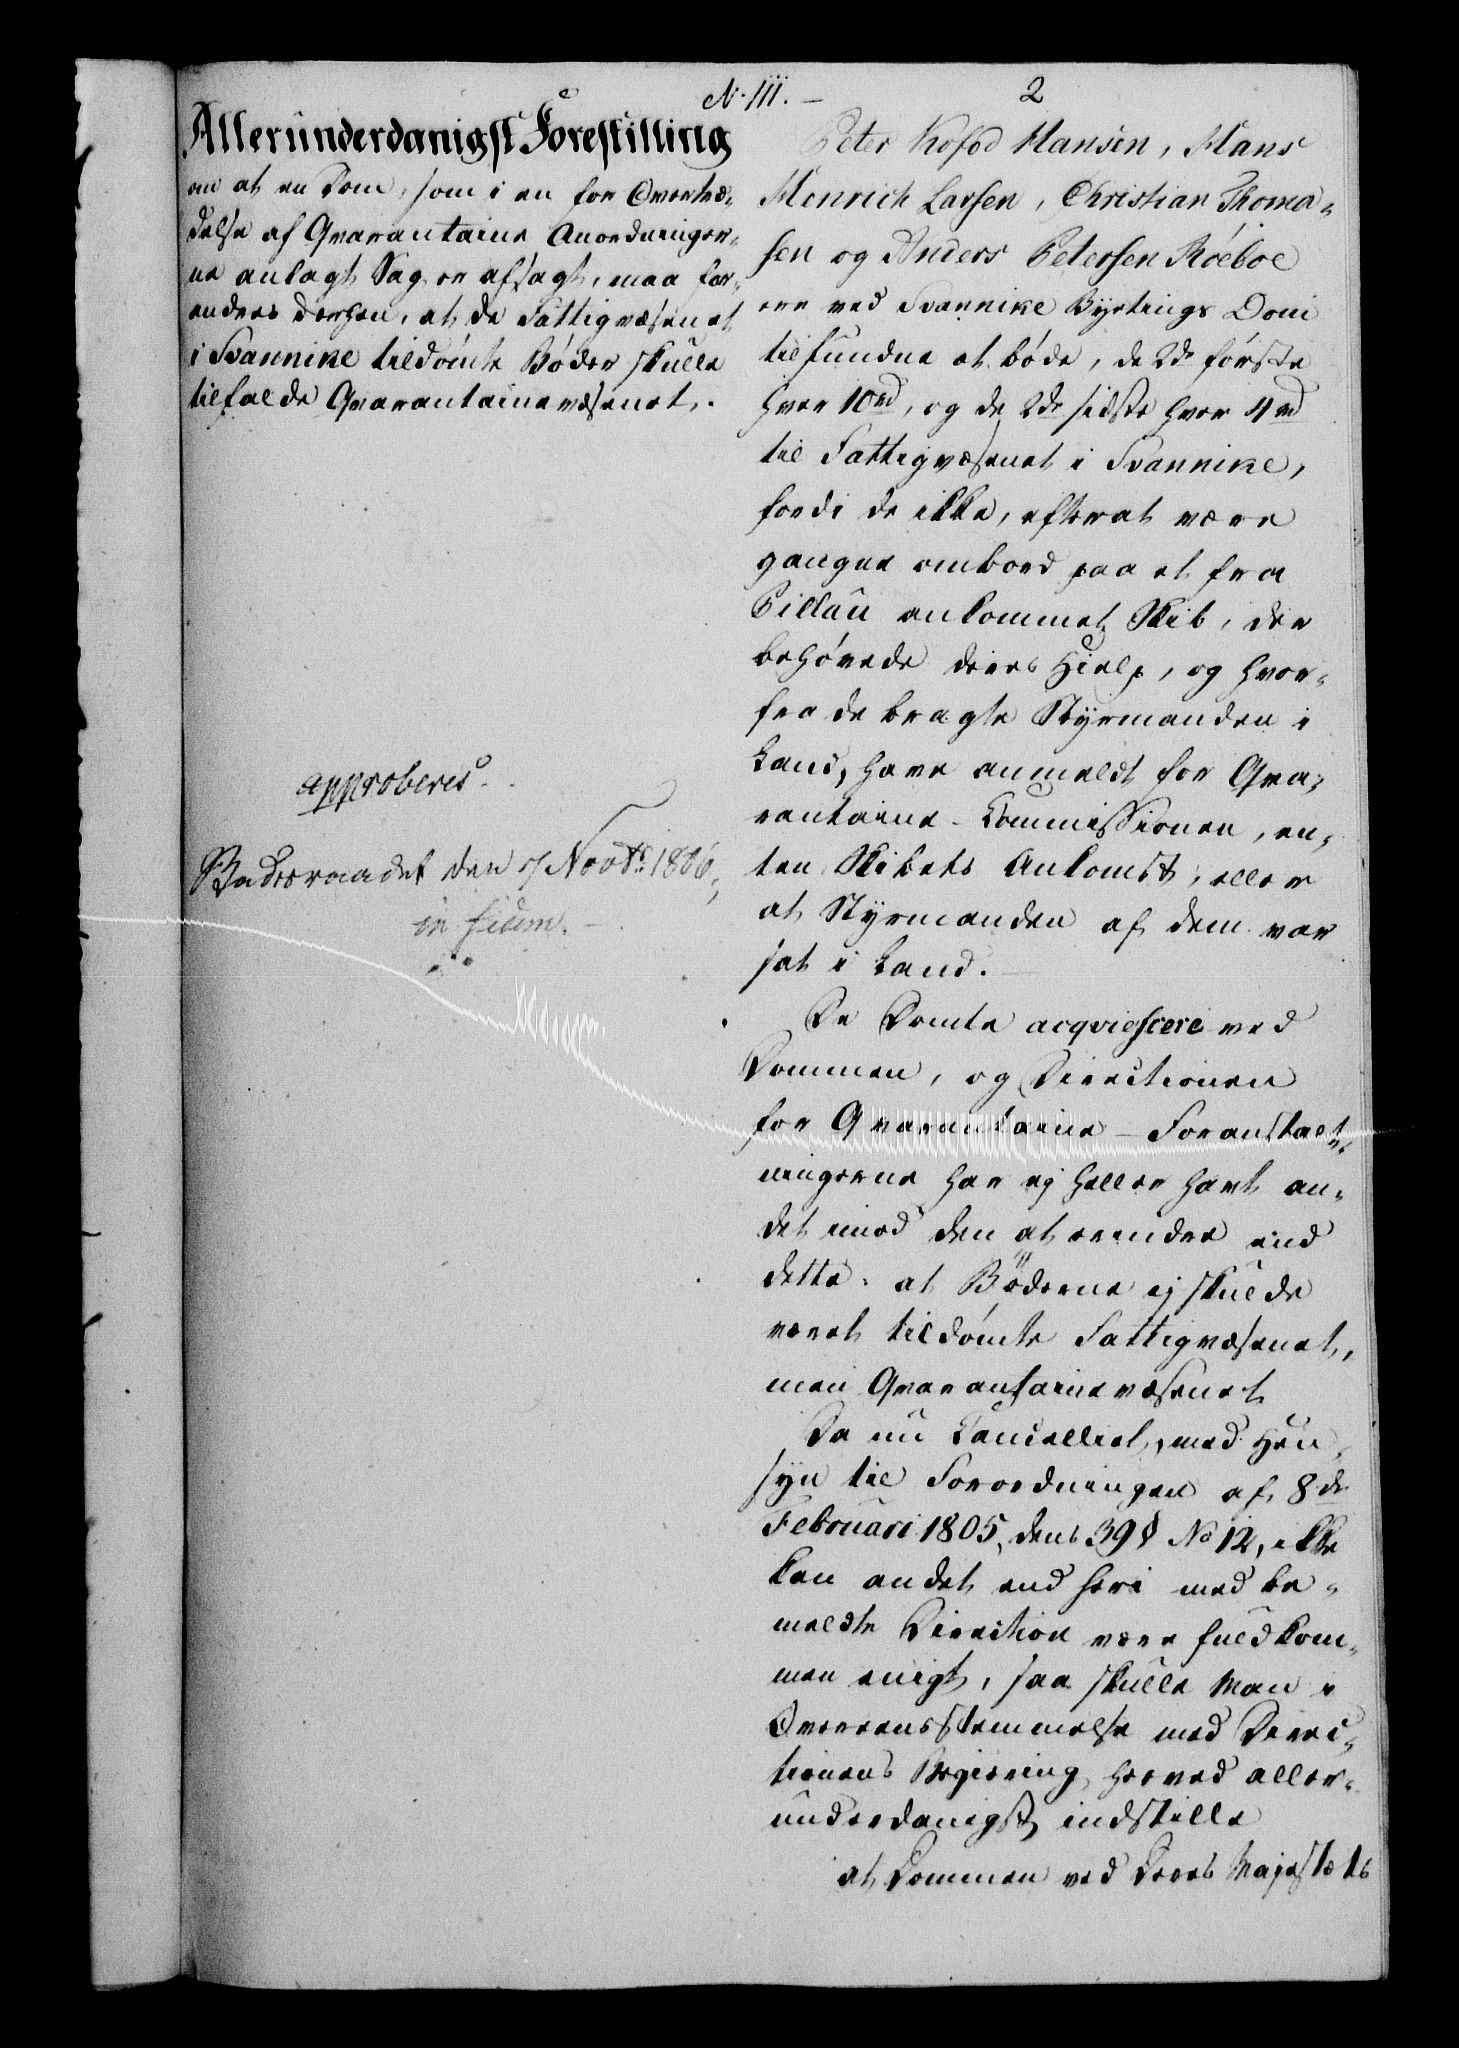 N. 111. —
2
Allerunderdanigst Forestilling
om at en Dom, som i en for Overtræ-
delse af Qvarantaine Anordninger-
ne anlagt Sag er afsagt, maa for-
andres derhen, at de Fattigvæsenet
i Svannike tildömte Böder skulle
tilfalde Qvarantainevæsenet.
approberes.
Statsraadet den 7 Novbr. 1806,
in fidem.
Peter Kofod Hansen, Hans
Henrich Larsen, Christian Thoma-
sen og Anders Petersen Röeboe
ere ved Svannike Byetings Dom
tilfundne at böde, de 2de förste
hver 10rd, og de 2de sidste hver 4rd
til Fattigvæsenet i Svannike,
fordi de ikke, efterat være
gangne ombord paa et fra
Pillau ankommet Skib, der
behövede deres Hielp, og hvor-
fra de bragte Styrmanden i
Land, have anmeldt for Qva-
rantaine-Commissionen, en-
ten Skibets Ankomst, eller
at Styrmanden af dem var
sat i Land.
De Domte acqviescere ved
Dommen, og Directionen
for Qvarantaine-Foranstalt-
ningerne har ej heller havt an-
det imod den at erindre end
dette: at Böderne ej skulde
været tildömte Fattigvæsenet,
men Qvarantainevæsenet
Da nu Cancelliet, med Hen-
syn til Forordningen af 8de
Februari 1805, dens 39 § No 12, ikke
kan andet end heri med be-
meldte Direction være fuldkom-
men enigt, saa skulle Man i
Overeensstemmelse med Direc-
tionens Begiering herved aller-
underdanigst indstille
at Dommen ved Deres Majestæts